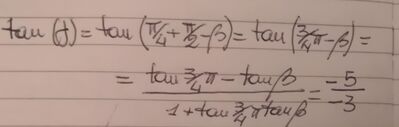 tan(γ) = tan(π/4 + π/2 - β) = tan(3/4 π - β) =
= (tan 3/4 π - tan β) / (1 + tan 3/4 π tan β) = -5/-3